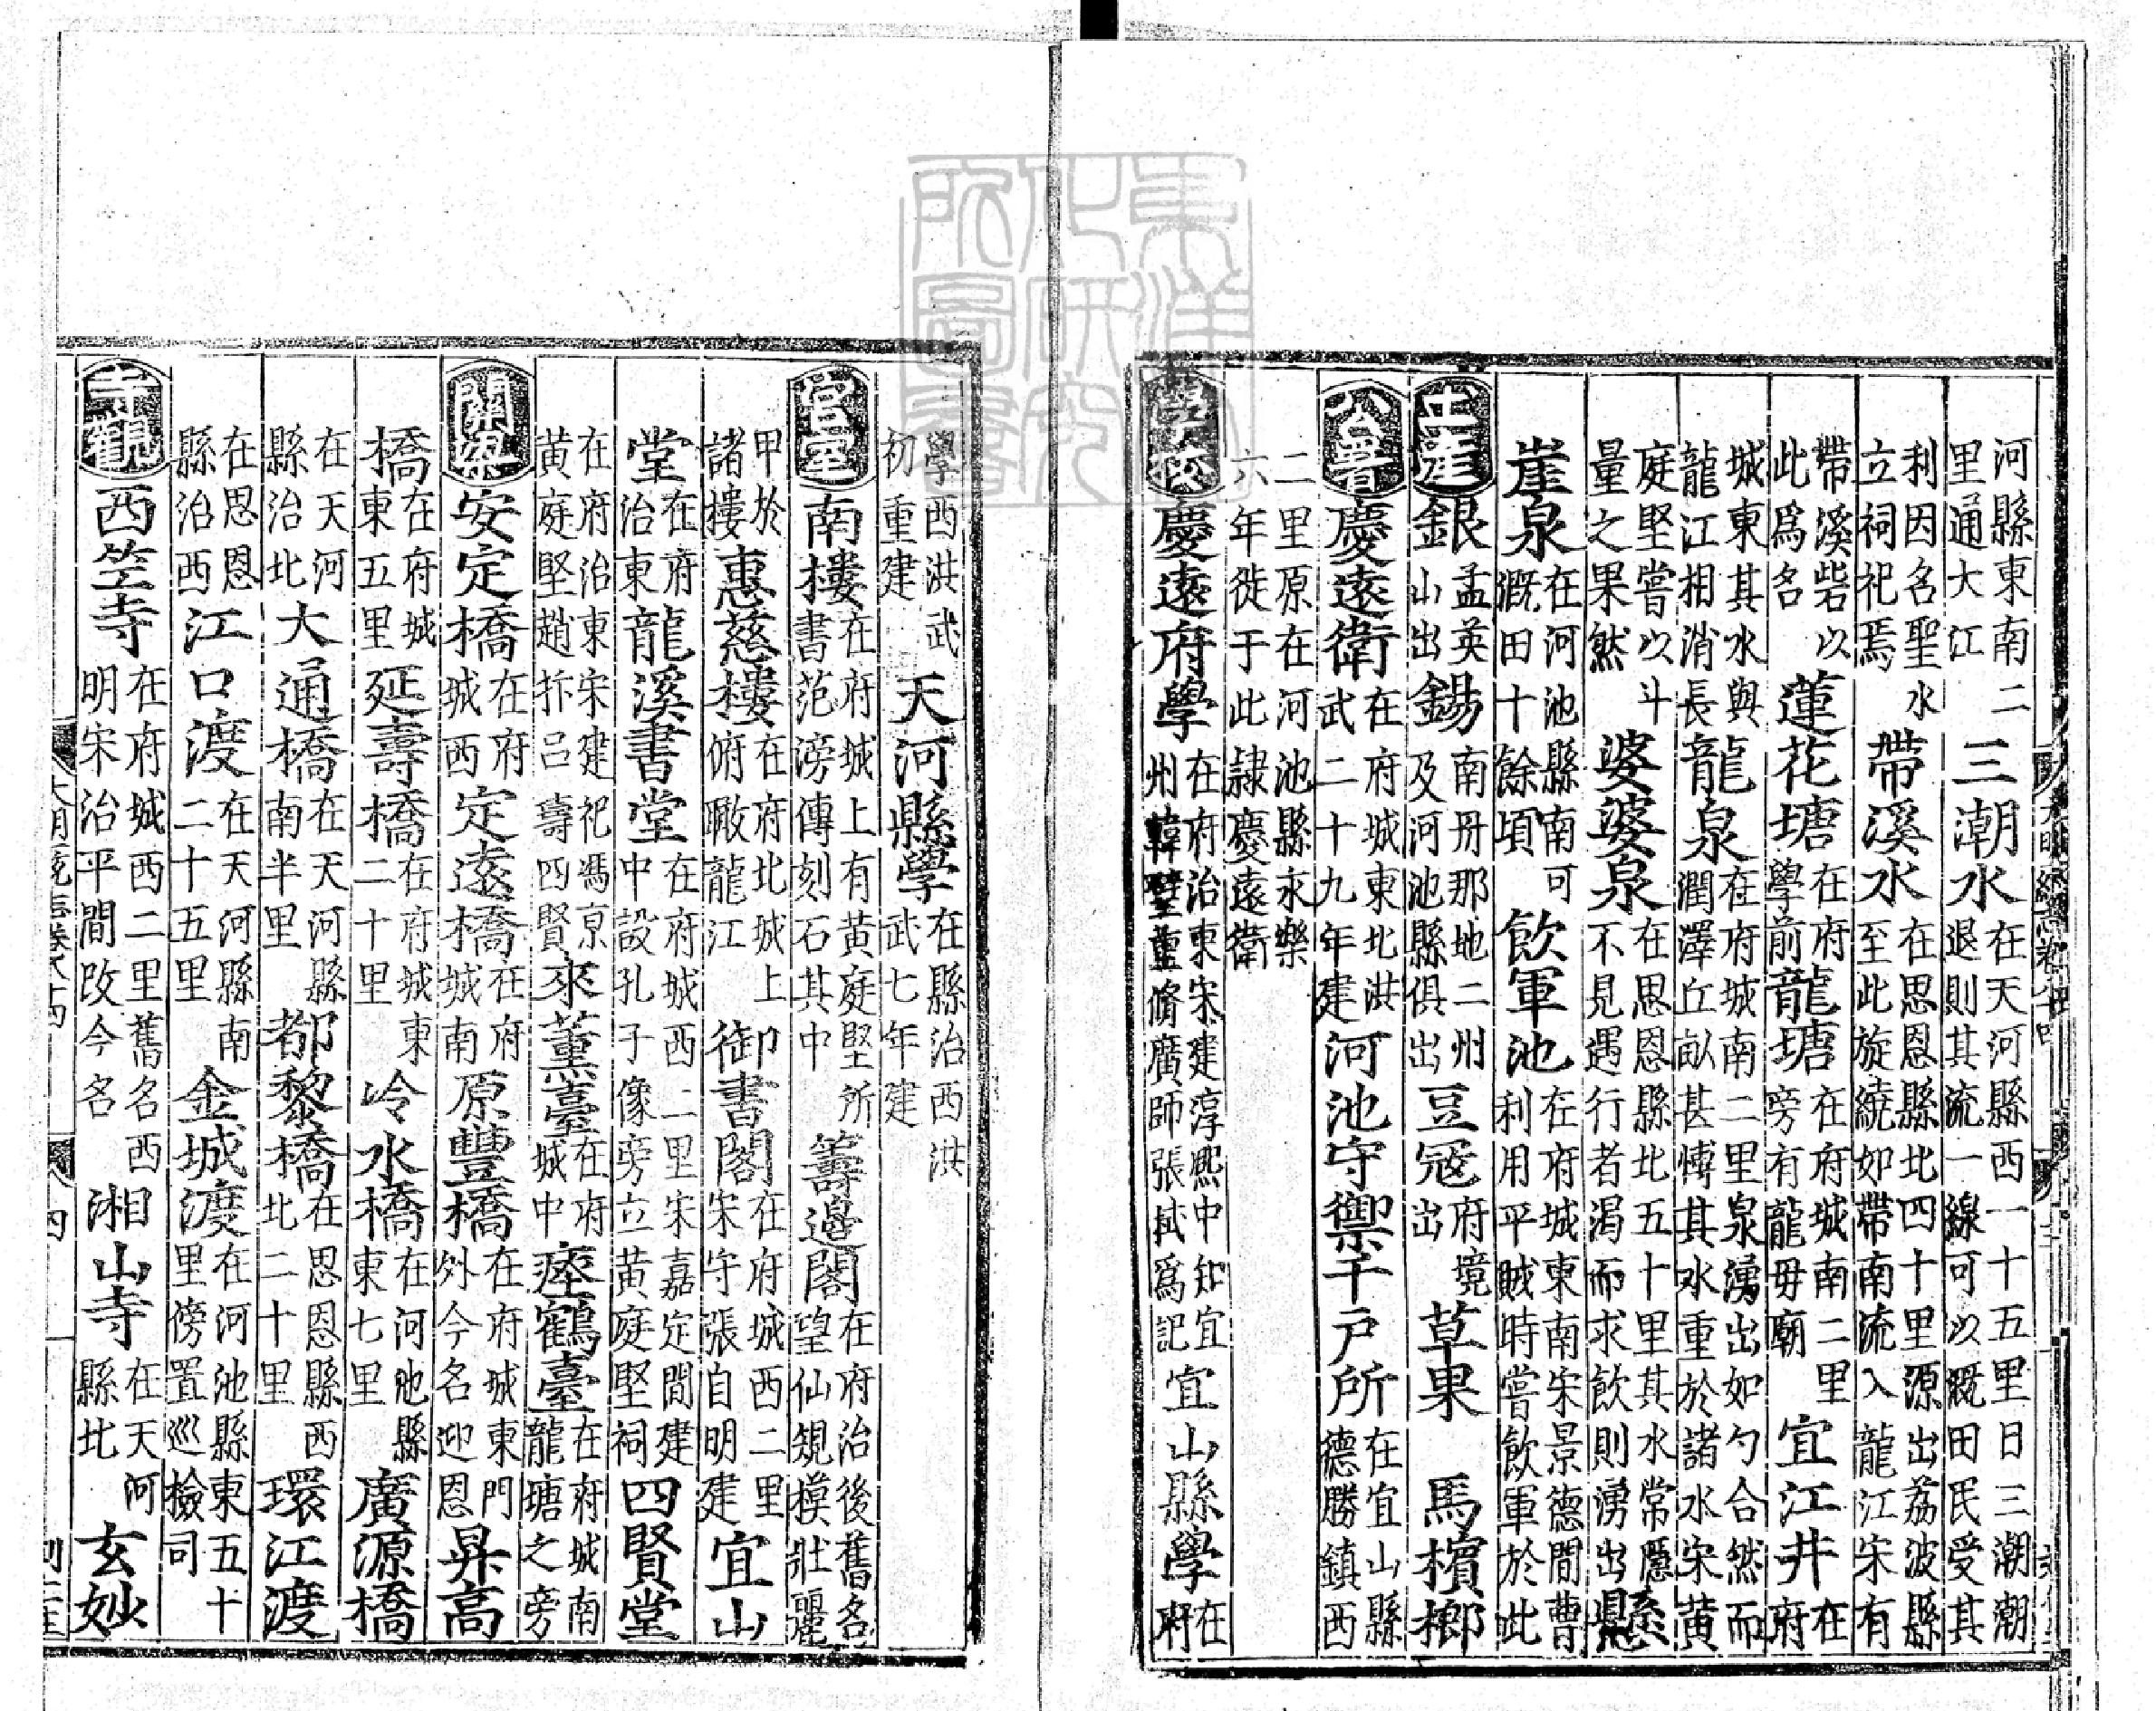 河縣東南二里通大江三潮水在天河縣西一十五里日三潮潮退則其流一線可以溉田民受其
利因名聖水立祠祀焉帶溪水在思恩縣北四十里源出荔波縣至此旋繞如帶南流入龍江宋有
帶溪砦以此爲名蓮花塘在府學前龍塘在府城南二里旁有龍毋廟宜江井在府
城東其水與龍江相消長龍泉在府城南二里泉湧出如勺合然而潤澤丘畝甚愽其水重於諸水宋黄
庭堅嘗以斗量之果然婆婆泉在思恩縣北五十里其水常隱不見遇行者渴而求飲則湧出懸
崖泉在河池縣南可溉田十餘頃飲軍池在府城東南宋景德間曹利用平賊時嘗飲軍於此
土產銀孟英山出錫南丹那地二州及河池縣俱出豆寇府境出草果馬檳榔
公署慶遠衛在府城東北洪武二十九年建河池守禦千戶所在宜山縣德勝鎮西
二里原在河池縣永樂六年徙于此隷慶遠衛
學校慶遠府學在府治東宋建淳熙中知宜州韓璧重脩廣師張栻爲記宜山縣學在府
學西洪武初重建天河縣學在縣治西洪武七年建
宮室南樓在府城上有黄庭堅所書范滂傳刻石其中籌邊閣在府治後舊名望仙規模壯麗
甲於諸樓惠慈樓在府北城上俯瞰龍江御書閣在府城西二里宋守張自明建宜山
堂在府治東龍溪書堂在府城西二里宋嘉定間建中設孔子像旁立黄庭堅祠四賢堂
在府治東宋建祀馮京黄庭堅趙抃呂壽四賢來薰臺在府城中瘞鶴臺在府城南龍塘之旁
關梁安定橋在府城西定遠橋在府城南原豐橋在府城東門外今名迎恩昇高
橋在府城東五里延壽橋在府城東二十里冷水橋在河池縣東七里廣源橋
在天河縣治北大通橋在天河縣南半里都黎橋在思恩縣西北二十里環江渡
在思恩縣治西江口渡在天河縣南二十五里金城渡在河池縣東五十里傍置巡檢司
寺觀西竺寺在府城西二里舊名西明宋治平間改今名湘山寺在天河縣北玄妙